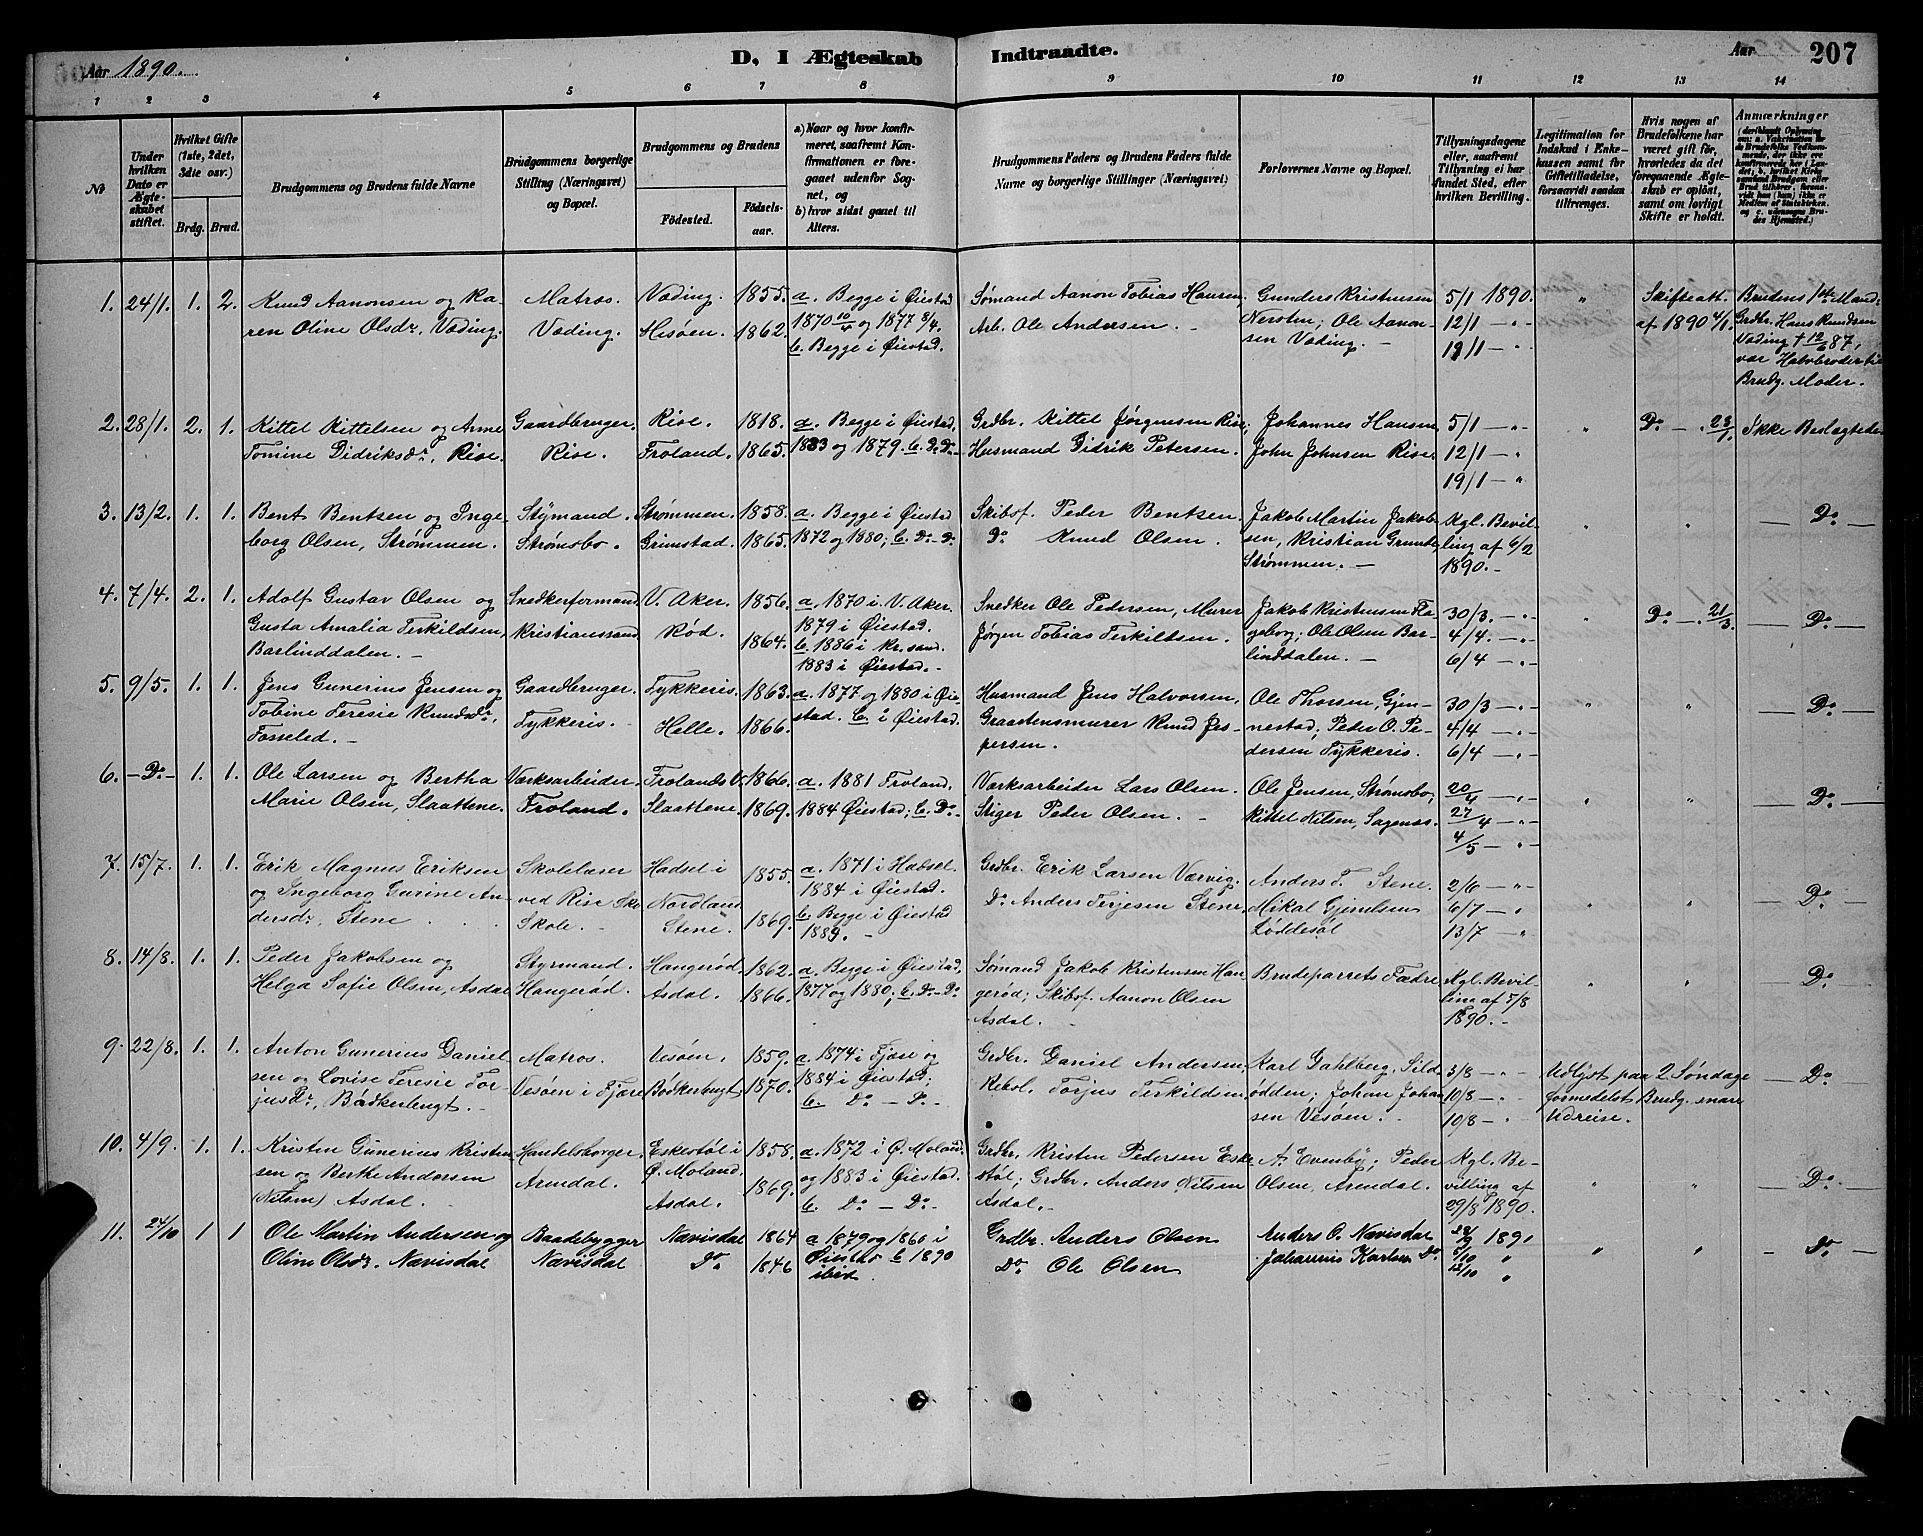 Aar 1890.
D. I Ægteskab Indtraadte.
Aar
207
1 2 3 4 5 6 7 8 9 10 11 12 13 14
No
Under hvilken Dato er Ægteskabet stiftet.
Hvilket Gifte (1ste, 2det, 3die osv.)
Brdg. Brud.
Brudgommens og Brudens fulde Navne
Brudgommens borgerlige Stilling (Næringsvei) og Bopæl.
Brudgommens og Brudens
Födested.
Födselsaar.
a) Naar og hvor konfirmeret, saafremt Konfirmationen er foregaaet udenfor Sognet, og
b) hvor sidst gaaet til Alters.
Brudgommens Faders og Brudens Faders fulde Navne og borgerlige Stillinger (Næringsvei)
Forlovernes Navne og Bopæl.
Tillysningsdagene eller, saafremt Tillysning ei har fundet Sted, efter hvilken Bevilling.
Legitimation for Indskud i Enkekassen samt for Giftetilladelse, forsaavidt saadan tiltrænges.
Hvis nogen af Brudefolkene har været gift för, hvorledes da det foregaaende Ægteskab er oplöst, samt om lovligt Skifte er holdt.
Anmærkninger
1. 24/1. 1. 2. Knud Aanonsen og Ka- Matros. Vøding. 1855. a. Begge i Øiestad Sømand Aanon Tobias Hansen. Gunders Kristensen 5/1 1890. " Skifteatt. Brudens 1ste Mand
ren Oline Olsdr, Vøding. Vøding. Hisøen. 1862. 1870 10/4 og 1877 8/4. Arb. Ole Andersen. – Nersten; Ole Aanon- 12/1 – " af 1890 4/1. Grdbr. Hans Knudsen
b. Begge i Øiestad. sen Vøding. – 19/1 – " Vøding † 12/6 87,
var Halvbroder til
Brudg. Moder.
2. 28/1. 2. 1. Kittel Kittelsen og Anne Gaardbruger. Rise. 1818. a. Begge i Øiestad, Grdbr. Kittel Jørgensen Rise; Johannes Hansen 5/1 – " " Do – " 23/1. Ikke Beslægtede
Tomine Didriksdr, Rise. Rise. Froland. 1865. 1833 og 1879. b. Do Do – Husmand Didrik Petersen. John Johnsen Rise. 12/1 – "
19/1 – "
3. 13/2. 1. 1. Bent Bentsen og Inge- Styrmand. Strømmen. 1858. a. Begge i Øiestad Skibsf. Peder Bentsen. Jakob Martin Jakob- Kgl. Bevil- " " – Do –
borg Olsen, Strømmen. Strømsbo. Grimstad. 1865. 1872 og 1880; b. Do – Do Do Knud Olsen. sen, Kristian Grundt ling af 6/2
Strømmen. – 1890. –
4. 7/4. 2. 1. Adolf Gustav Olsen og Snedkerformand V. Aker. 1856. a. 1870 i V. Aker. Snedker Ole Pedersen, Murer Jakob Kristensen Fla- 30/3. – " " Do – " 21/3. – Do –
Gusta Amalia Terkildsen, Kristianssand Rød. 1864. 1879 i Øiestad. Jørgen Tobias Terkildsen. geborg; Ole Olsen Bar- 4/4. – "
Barlinddalen. – b. 1886 i Kr.sand. linddalen. – 6/4 – "
1883 i Øiestad. –
5. 9/5. 1. 1. Jens Gunerius Jensen og Gaardbruger. Tykkeris. 1863. a. 1877 og 1880 i Øie- Husmand Jens Halvorsen, Ole Thorsen, Gjen- 30/3 – " " " – Do –
Tobine Teresie Knudsdr, Tykkeris. – Helle. 1866. stad. b. i Øiestad. Graastensmurer Knud Jes- nestad; Peder O. Pe- 4/4 – "
Fosseled. – persen. dersen Tykkeris. 6/4 – "
6. – Do – 1. 1. Ole Larsen og Bertha Værksarbeider. Frolands V. 1866. a. 1881 Froland. Værksarbeider Lars Olsen. Ole Jensen, Strømsbo, 20/4 – " " " – Do –
Marie Olsen, Slaattene. Froland. Slaattene. 1869. 1884 Øiestad; b. Do – Stiger Peder Olsen. – Kittel Nilsen, Sagenes. 27/4 – "
4/5 – "
7. 15/7. 1. 1. Erik Magnus Eriksen Skolelærer Hadsel i 1855. a. 1871 i Hadsel. Grdbr. Erik Larsen Værvig. Anders T. Stene. 2/6 – " " " – Do –
og Ingeborg Gurine An- ved Rise Skr. Nordland 1869. 1884 i Øiestad. Do Anders Terjesen Stene. Mikal Gjerulsen 6/7 – "
dersdr, Stene Skole. – Stene. b. Begge i Øiestad Løddesøl 13/7 – "
1889. –
8. 14/8. 1. 1. Peder Jakobsen og Styrmand. Hangerød. 1862. a. Begge i Øiestad, Sømand Jakob Kristensen Han- Brudeparrets Fædre Kgl. Bevil- " " – Do –
Helga Sofie Olsen, Asdal Hangerød. Asdal. 1866. 1877 og 1880; b. Do – Do gerød; Skibsf. Aanon Olsen ling af 5/8
Asdal. – 1890. –
9. 22/8. 1. 1. Anton Gunerius Daniel- Matros. Vesøen. 1859. a. 1874 i Fjære og Grdbr. Daniel Andersen, Karl Dahlberg, Sild- 3/8 – " Udlyst paa 2 Søndage – Do –
sen og Lovise Teresie Tor- Vesøen i Fjære Bødkerbugt 1870. 1884 i Øiestad; Torjus Terkildsen odden; Johan Johan- 10/8 – " formedelst Brudg. snare
jusdr, Bødkerbugt. – b. Do – Do – sen Vesøen. 10/8 – " Udreise.
10. 4/9. 1. 1. Kristen Gunerius Kristen- Handelsborger. Eskestøl i 1858. a. 1872 i Ø. Moland. Grdbr. Kristen Pedersen Eske- A. Evenby; Peder Kgl. Be- " " – Do –
sen og Berthe Andersen Arendal. Ø. Moland. 1869. og 1883 i Øiestad. støl; Grdbr. Anders Nilsen Olsen, Arendal. villing af
(Nilsen) Asdal. Asdal. b. Do – Do – Asdal. – 29/8 1890.
11. 24/10 1 1 Ole Martin Andersen og Baadebygger Nævisdal 1864 a 1879 og 1860 i Grdbr. Anders Olsen Anders O. Nævisdal 28/9 1891 " " – Do –
Oline Olsdr. Nævisdal Nævisdal Do 1846 Øiestad b 1890 Do Ole Olsen Johannes Karlsen Do 5/10 "
ibid. 12/10 "